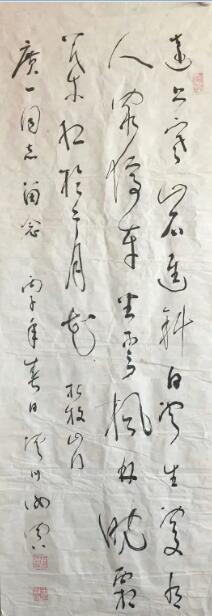 遠上寒山石逕斜白雲生處有
人家停車坐愛楓林晚霜
葉紅於二月花 杜牧山行
廣一同志留念 丙子年春日